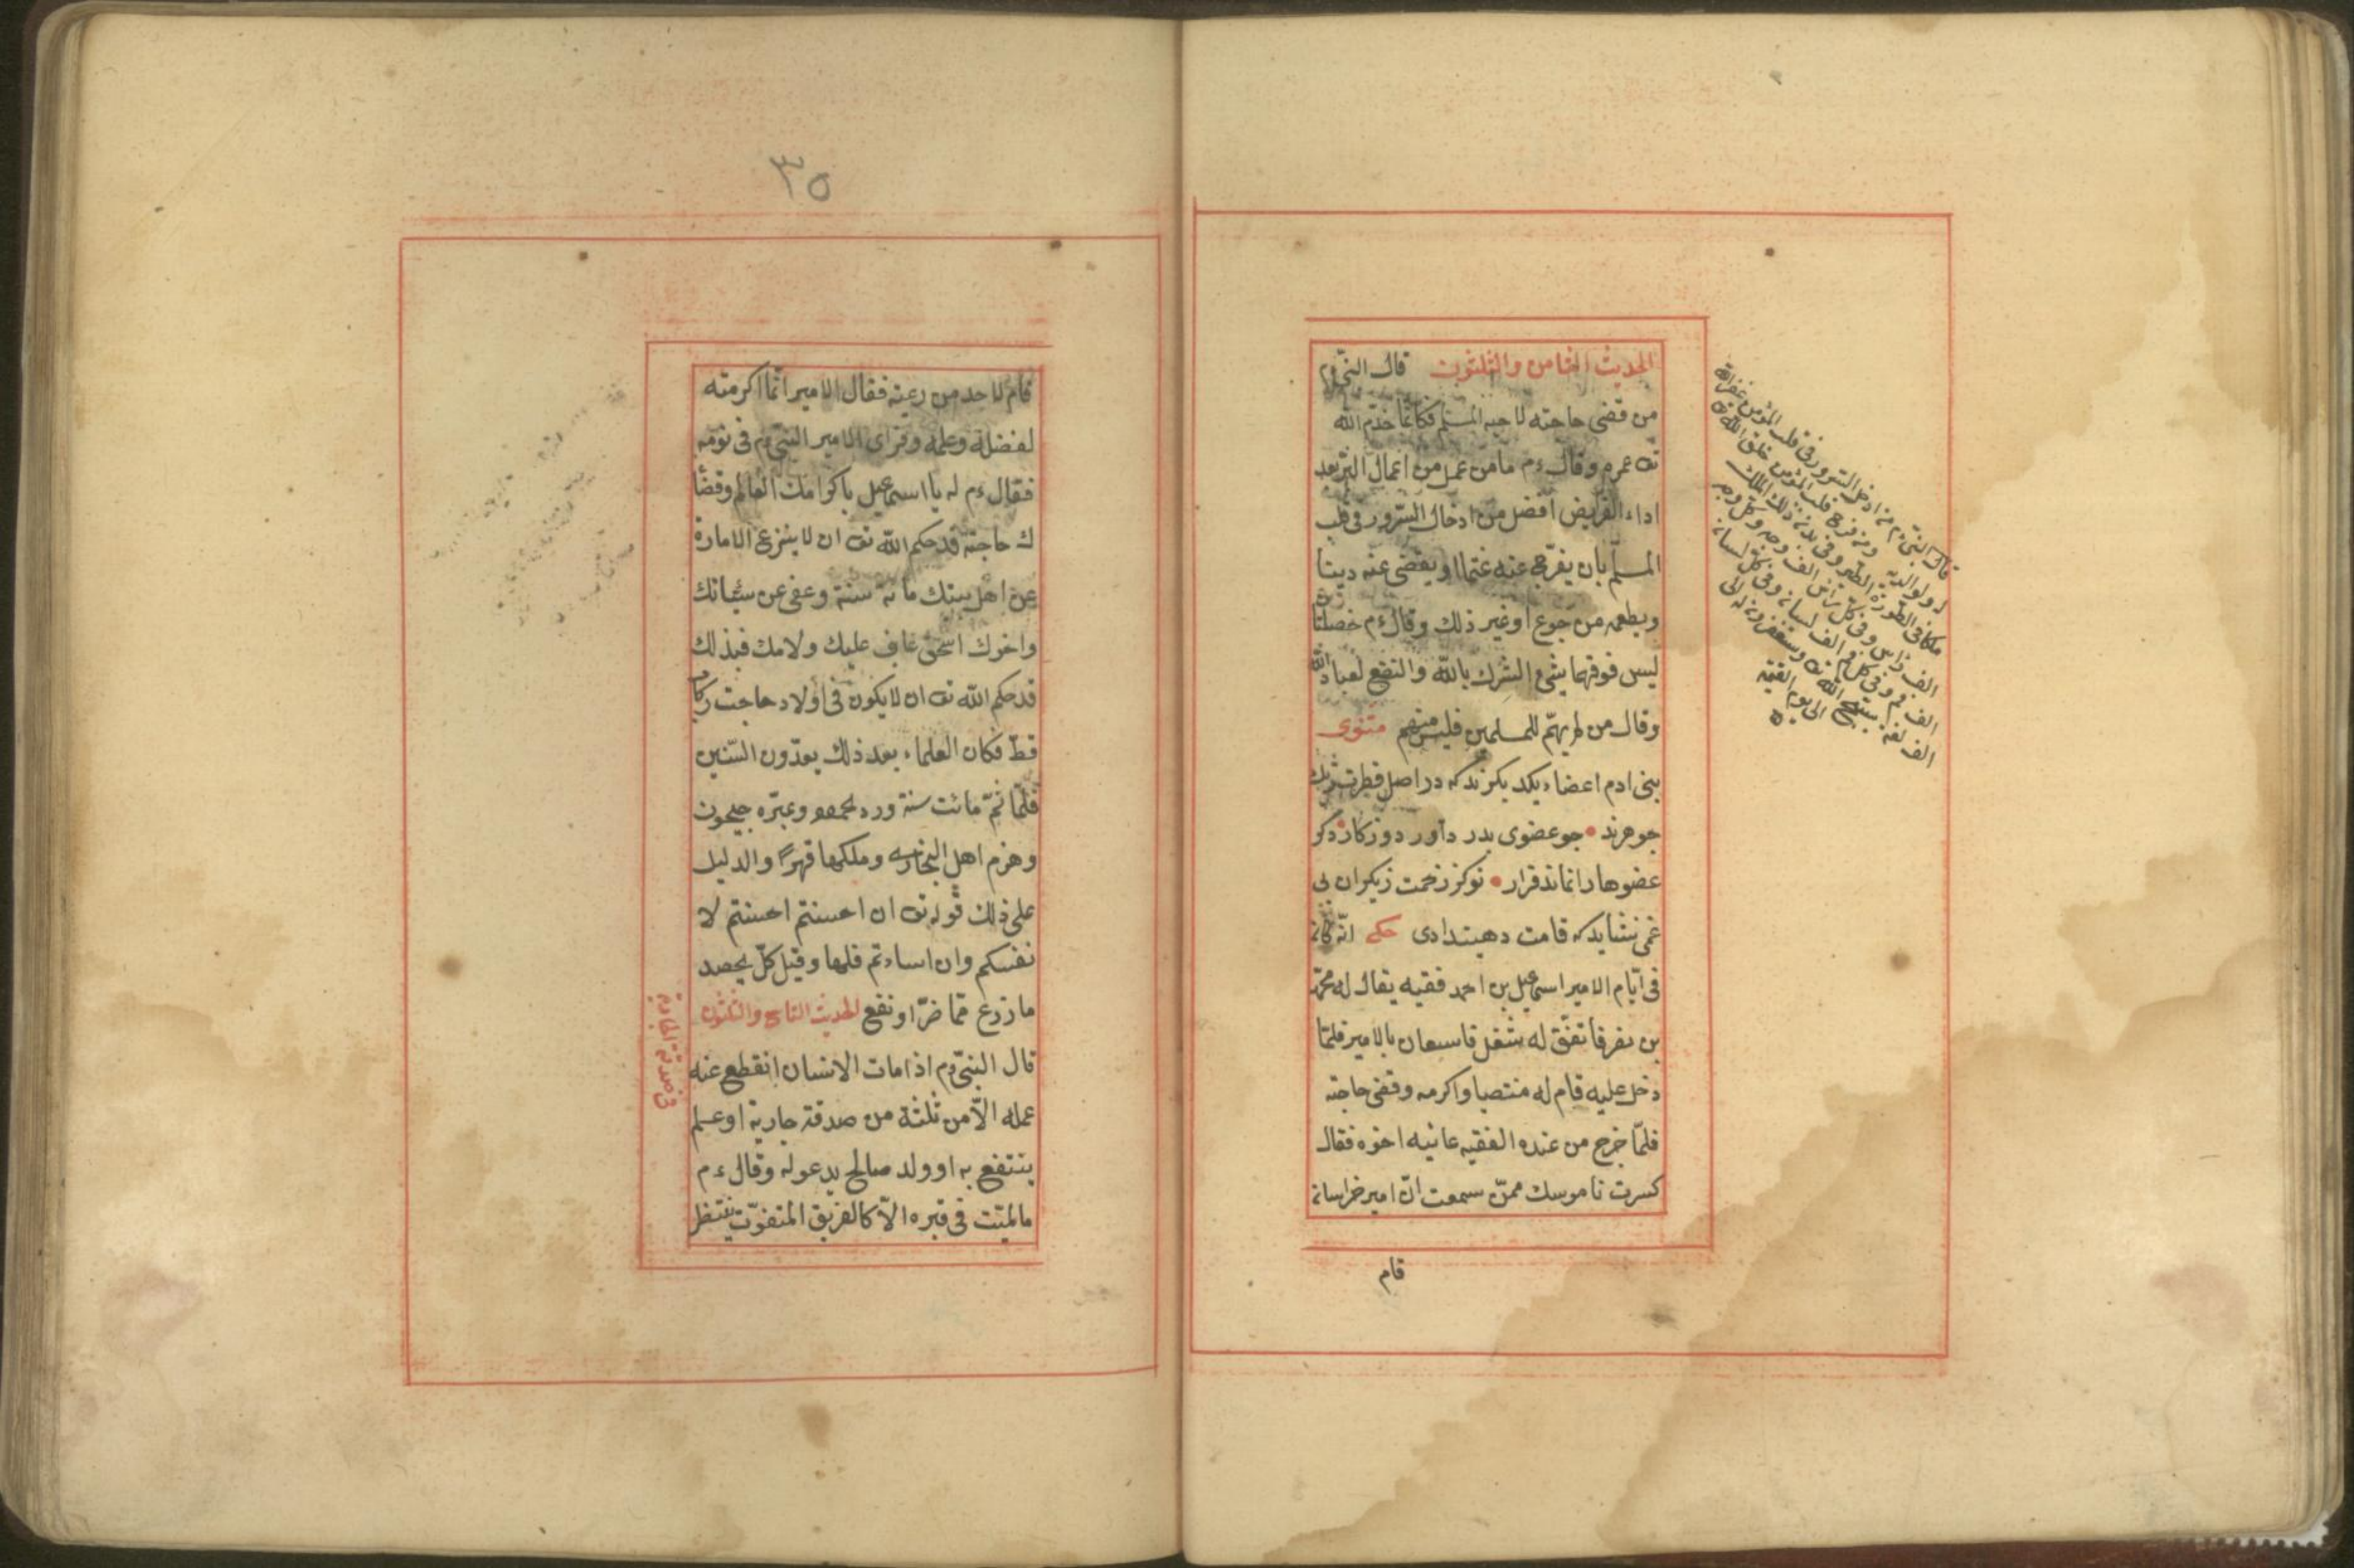 الحديث الثامن والثلثون قال النبى ءم
من قضى حاجته لاخيه المسلم فكانما خدم الله
تع عمره وقال ءم ما من عمل من اعمال البر بعد
اداء الفريض افضل من ادخال السرور فى قلب
المسلم بان يفرج عنه غما او يقضى عنه دينا
ويطعمه من جوع او غير ذلك وقال ءم خصلتان
ليس فوقهما شئ الشرك بالله والنفع لعباد الله
وقال من لم يهم للمسلمين فليس منهم مثنوى
بنى ادم اعضاء يكديكرند كه در اصل فطرت
جوهرند • جو عضوى بدرد آورد روزكار دكر
عضوها را نماند قرار • توكز زحمت ديكران بى
غمى نشايد كه نامت دهند ادى حكى انه كان
فى ايام الامير اسمعيل بن احمد فقيه يقال له محمد
بن نفر فاتفق له شغل فاستعان بالامير فلما
دخل عليه قام له منتصبا واكرمه وقضى حاجته
فلما خرج من عنده الفقيه عاتبه اخوه فقال
كسرت ناموسك ممن سمعت ان امير خراسان
قام
قال النبى ءم من ادخل السرور فى قلب المؤمن غفر الله
له ولوالديه ومن فرح قلب المؤمن خلق الله تع
ملكا فى الصورة الطير وفى بدنه ذلك الملك
الف رأس وفى كل رأس الف وجه وكل وجه
الف فم وفى كل فم الف لسان وفى كل لسان
الف لغة يسبح الله تع ويستغفرون له الى
الى يوم القيمة
٣٥
قام لاحد من رعيته فقال الامير انما اكرمته
لفضله وعلمه وفراى الامير النبى ءم فى نومه
فقال ءم له يا اسمعيل باكرامك العالم وقضا
ك حاجته قد حكم الله تع ان لا ينزع الامارة
عن اهل بيتك مائة سنة وعفى عن سيئاتك
واخوك اسحق عاف عليك ولامك فبذلك
قد حكم الله تع ان لا يكون فى اولاد حاجت ركاب
قط فكان العلماء بعد ذلك يعدون السنين
فلما تم مائت سنة ورد محمود وعبره جيحون
وهزم اهل البخارسه وملكها قهرا والدليل
على ذلك قوله تع ان احسنتم احسنتم لا
نفسكم وان اساءتم فلها وقيل كل يحصد
ما زرع مما ضرا ونفع الحديث التاسع والثلثون
قال النبى ءم اذا مات الانسان انقطع عنه
عمله الا من ثلثة من صدقة جارية او علم
ينتفع به او ولد صالح يدعو له وقال ءم
ما الميت فى قبره الا كالغريق المتغوث ينتظر
فى صدقة الجارية